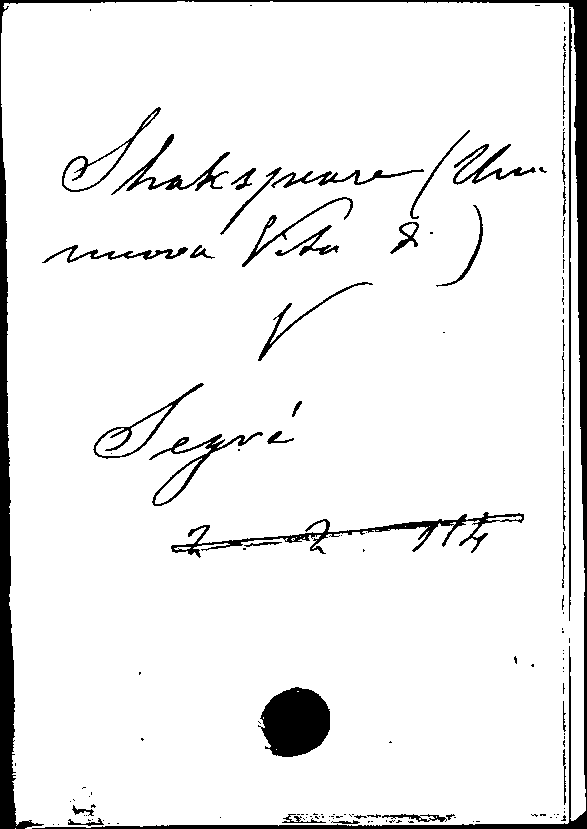 Shakspeare (Una
nuova Vita di)
V
Segré
2 2 114